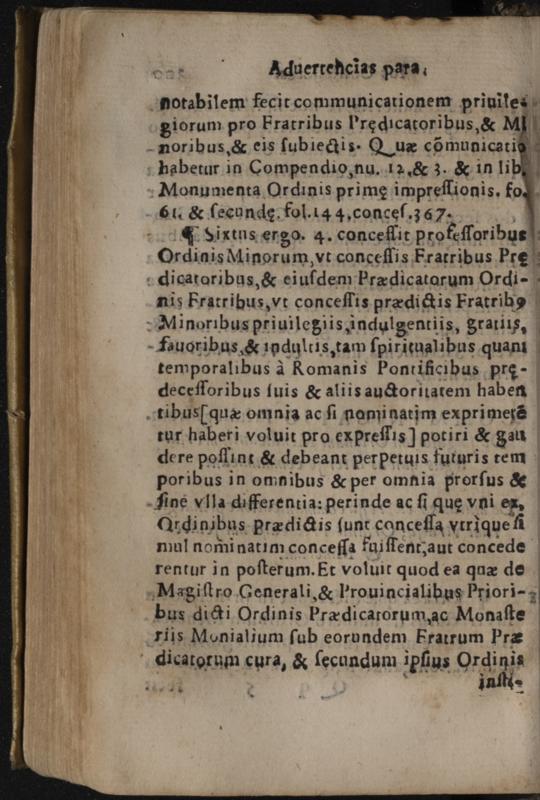 Aduertencias para
notabilem fecit communicationem priuile-
giorum pro Fratribus Prędicatoribus,& Mi
noribus,& eis subiectis. Quæ cōmunicatio
habetur in Compendio,nu. 12,& 3. & in lib.
Monumenta Ordinis primę impressionis. fo.
61. & secundę. fol.144.conces.367.
¶ Sixtus ergo. 4. concessit professoribus
Ordinis Minorum,vt concessis Fratribus Prę
dicatoribus,& eiusdem Prædicatorum Ordi-
nis Fratribus,vt concessis prædictis Fratribꝰ
Minoribus priuilegiis,indulgentiis, gratiis,
fauoribus,& indultis,tam spiritualibus quam
temporalibus à Romanis Pontificibus prę-
decessoribus suis & aliis auctoritatem haben
tibus[quæ omnia ac si nominatim exprimerē
tur haberi voluit pro expressis] potiri & gau
dere possint & debeant perpetuis futuris tem
poribus in omnibus & per omnia prorsus &
sine vlla differentia: perinde ac si quę vni ex,
Ordinibus prædictis sunt concessa vtrique si
mul nominatim concessa fuissent,aut concede
rentur in posterum.Et voluit quod ea quæ de
Magistro Generali,& Prouincialibus Priori-
bus dicti Ordinis Prædicatorum,ac Monaste
riis Monialium sub eorundem Fratrum Præ
dicatorum cura, & secundum ipsius Ordinis
insti-